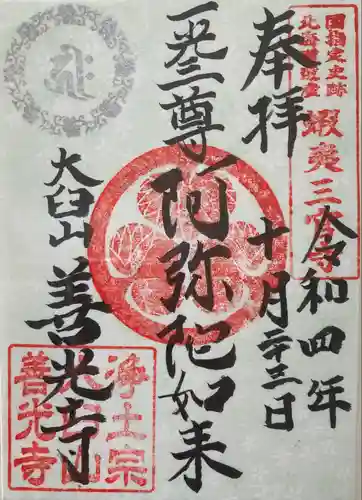 國指定史跡
北海道遺産
蝦夷三官寺
奉拝
令和四年
十月二十三日
一光三尊阿弥陀如来
大臼山善光寺
浄土宗
大臼山
善光寺